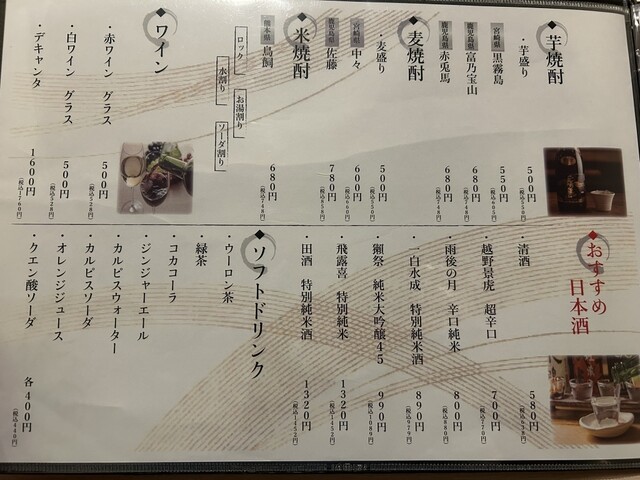 芋焼酎
・芋盛り 500円 (税込550円)
宮崎県 黒霧島 550円 (税込605円)
鹿児島県 富乃宝山 680円 (税込748円)
鹿児島県 赤兎馬 680円 (税込748円)
麦焼酎
・麦盛り 500円 (税込550円)
宮崎県 中々 600円 (税込660円)
鹿児島県 佐藤 780円 (税込858円)
米焼酎
熊本県 鳥飼 680円 (税込748円)
ロック
水割り
お湯割り
ソーダ割り
ワイン
・赤ワイン グラス 500円 (税込528円)
・白ワイン グラス 500円 (税込528円)
・デキャンタ 1600円 (税込1760円)
おすすめ
日本酒
・清酒 580円 (税込638円)
・越野景虎 超辛口 700円 (税込770円)
・雨後の月 辛口純米 800円 (税込880円)
・一白水成 特別純米酒 890円 (税込979円)
・獺祭 純米大吟醸45 990円 (税込1089円)
・飛露喜 特別純米 1320円 (税込1452円)
・田酒 特別純米酒 1320円 (税込1452円)
ソフトドリンク
・ウーロン茶
・緑茶
・コカコーラ
・ジンジャーエール
・カルピスウォーター
・カルピスソーダ
・オレンジジュース
・クエン酸ソーダ
各400円 (税込440円)